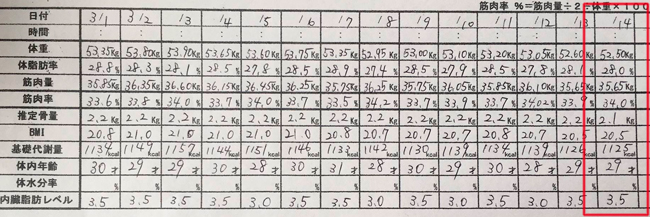 筋肉率 %=筋肉量÷2÷体重×100
日付 3/1 3/2 1/3 1/4 1/5 1/6 1/7 1/8 1/9 1/10 1/11 1/12 1/13 1/14
時間 : : : : : : : : : : : : : :
体重 53.35Kg 53.80Kg 53.90Kg 53.65Kg 53.60Kg 53.75Kg 53.35Kg 52.95Kg 53.00Kg 53.10Kg 53.20Kg 53.05Kg 52.60Kg 52.50Kg
体脂肪率 28.8% 28.3% 28.1% 28.5% 27.8% 28.5% 28.9% 27.4% 28.5% 27.9% 28.5% 27.8% 28.1% 28.0%
筋肉量 35.85Kg 36.35Kg 36.60Kg 36.15Kg 36.45Kg 36.25Kg 35.75Kg 36.25Kg 35.75Kg 36.05Kg 35.85Kg 36.10Kg 35.65Kg 35.65Kg
筋肉率 33.6% 33.8% 34.0% 33.7% 34.0% 33.7% 33.5% 34.2% 33.7% 33.9% 33.7% 34.02% 33.9% 34.0%
推定骨量 2.2Kg 2.2Kg 2.2Kg 2.2Kg 2.2Kg 2.2Kg 2.2Kg 2.2Kg 2.2Kg 2.2Kg 2.2Kg 2.2Kg 2.2Kg 2.1Kg
BMI 20.8 21.0 21.0 21.0 21.0 21.0 20.8 20.7 20.7 20.7 20.8 20.7 20.5 20.5
基礎代謝量 1134kcal 1149kcal 1157kcal 1144kcal 1151kcal 1146kcal 1133kcal 1142kcal 1130kcal 1139kcal 1134kcal 1139kcal 1126kcal 1125kcal
体内年齢 30才 29才 29才 30才 28才 30才 31才 28才 30才 29才 30才 28才 29才 29才
体水分率 % % % % % % % % % % % % % %
内臓脂肪レベル 3.5 3.5 3.5 3.5 3.0 3.5 3.5 3.0 3.5 3.5 3.5 3.0 3.5 3.5